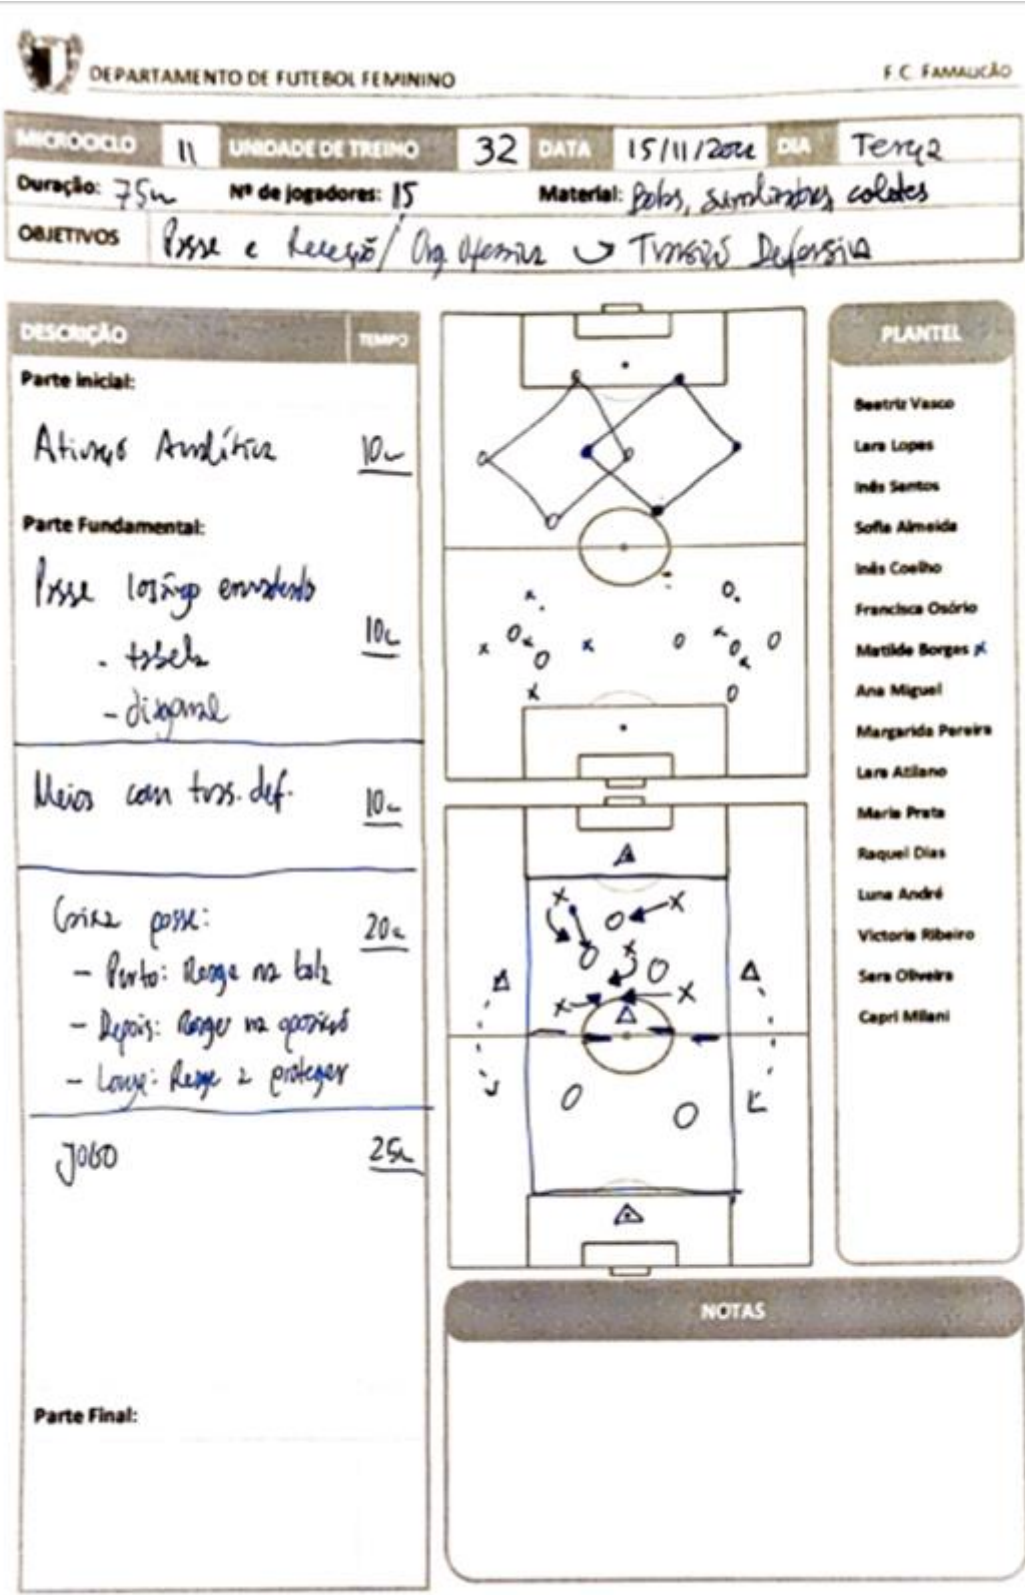 DEPARTAMENTO DE FUTEBOL FEMININO
F.C. FAMALICÃO
MICROCICLO 11 UNIDADE DE TREINO 32 DATA 15/11/2022 DIA Terça
Duração: 75m Nº de jogadores: 15 Material: Bolas, sinalizadores, coletes
OBJETIVOS Passe e Receção / Org. Ofensiva Transição Defensiva
DESCRIÇÃO TEMPO
Parte inicial:
Ativação Analítica 10m
Parte Fundamental:
Passe losango
10m
- tabela
- diagonal
Meios com trans. def. 10m
posse: 20m
- Perto: Reage na bola
- Depois: Reage na
- Longe: Reage a proteger
JOGO 25m
Parte Final:
PLANTEL
Beatriz Vasco
Lara Lopes
Inês Santos
Sofia Almeida
Inês Coelho
Francisca Osório
Matilde Borges x
Ana Miguel
Margarida Pereira
Lara Atilano
Maria Prata
Raquel Dias
Luna André
Victoria Ribeiro
Sara Oliveira
Capri Milani
NOTAS